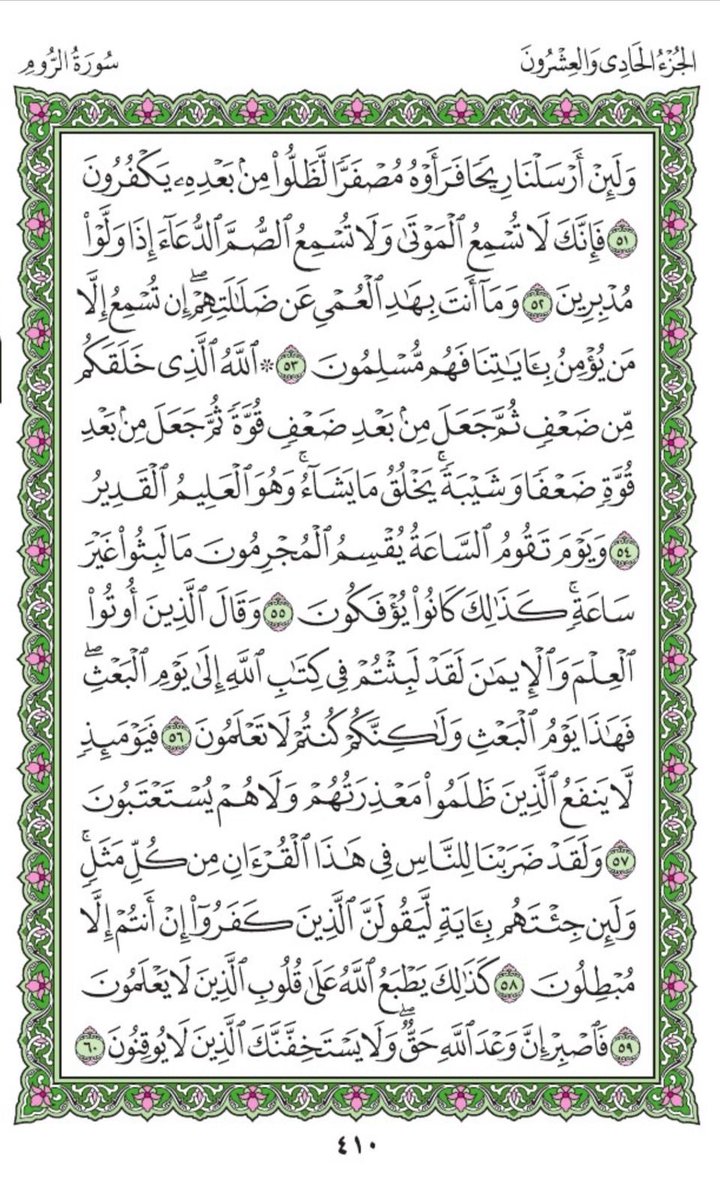 الجُزْءُ الحَادِى وَالعِشْرُونَ سُورَةُ الرُّومِ
وَلَئِنۡ أَرۡسَلۡنَا رِيحٗا فَرَأَوۡهُ مُصۡفَرّٗا لَّظَلُّواْ مِنۢ بَعۡدِهِۦ يَكۡفُرُونَ
٥١ فَإِنَّكَ لَا تُسۡمِعُ ٱلۡمَوۡتَىٰ وَلَا تُسۡمِعُ ٱلصُّمَّ ٱلدُّعَآءَ إِذَا وَلَّوۡاْ
مُدۡبِرِينَ ٥٢ وَمَآ أَنتَ بِهَٰدِ ٱلۡعُمۡيِ عَن ضَلَٰلَتِهِمۡۖ إِن تُسۡمِعُ إِلَّا
مَن يُؤۡمِنُ بِـَٔايَٰتِنَا فَهُم مُّسۡلِمُونَ ٥٣ ۞ ٱللَّهُ ٱلَّذِي خَلَقَكُم
مِّن ضَعۡفٖ ثُمَّ جَعَلَ مِنۢ بَعۡدِ ضَعۡفٖ قُوَّةٗ ثُمَّ جَعَلَ مِنۢ بَعۡدِ
قُوَّةٖ ضَعۡفٗا وَشَيۡبَةٗۚ يَخۡلُقُ مَا يَشَآءُۚ وَهُوَ ٱلۡعَلِيمُ ٱلۡقَدِيرُ
٥٤ وَيَوۡمَ تَقُومُ ٱلسَّاعَةُ يُقۡسِمُ ٱلۡمُجۡرِمُونَ مَا لَبِثُواْ غَيۡرَ
سَاعَةٖۚ كَذَٰلِكَ كَانُواْ يُؤۡفَكُونَ ٥٥ وَقَالَ ٱلَّذِينَ أُوتُواْ
ٱلۡعِلۡمَ وَٱلۡإِيمَٰنَ لَقَدۡ لَبِثۡتُمۡ فِي كِتَٰبِ ٱللَّهِ إِلَىٰ يَوۡمِ ٱلۡبَعۡثِۖ
فَهَٰذَا يَوۡمُ ٱلۡبَعۡثِ وَلَٰكِنَّكُمۡ كُنتُمۡ لَا تَعۡلَمُونَ ٥٦ فَيَوۡمَئِذٖ
لَّا يَنفَعُ ٱلَّذِينَ ظَلَمُواْ مَعۡذِرَتُهُمۡ وَلَا هُمۡ يُسۡتَعۡتَبُونَ
٥٧ وَلَقَدۡ ضَرَبۡنَا لِلنَّاسِ فِي هَٰذَا ٱلۡقُرۡءَانِ مِن كُلِّ مَثَلٖۚ
وَلَئِن جِئۡتَهُم بِـَٔايَةٖ لَّيَقُولَنَّ ٱلَّذِينَ كَفَرُوٓاْ إِنۡ أَنتُمۡ إِلَّا
مُبۡطِلُونَ ٥٨ كَذَٰلِكَ يَطۡبَعُ ٱللَّهُ عَلَىٰ قُلُوبِ ٱلَّذِينَ لَا يَعۡلَمُونَ
٥٩ فَٱصۡبِرۡ إِنَّ وَعۡدَ ٱللَّهِ حَقّٞۖ وَلَا يَسۡتَخِفَّنَّكَ ٱلَّذِينَ لَا يُوقِنُونَ ٦٠
٤١٠